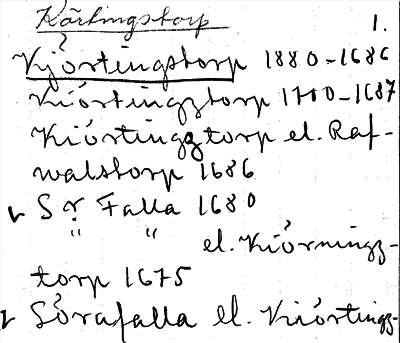 Kärtingstorp 1.
Kjörtingstorp 1880-1686
Kiörtingztorp 1700-1687
Kiörtingztorp el. Raf-
walstorp 1686
Sr Falla 1680
" " el. Kiörningz-
torp 1675
Sörafalla el. Kiörtingz-